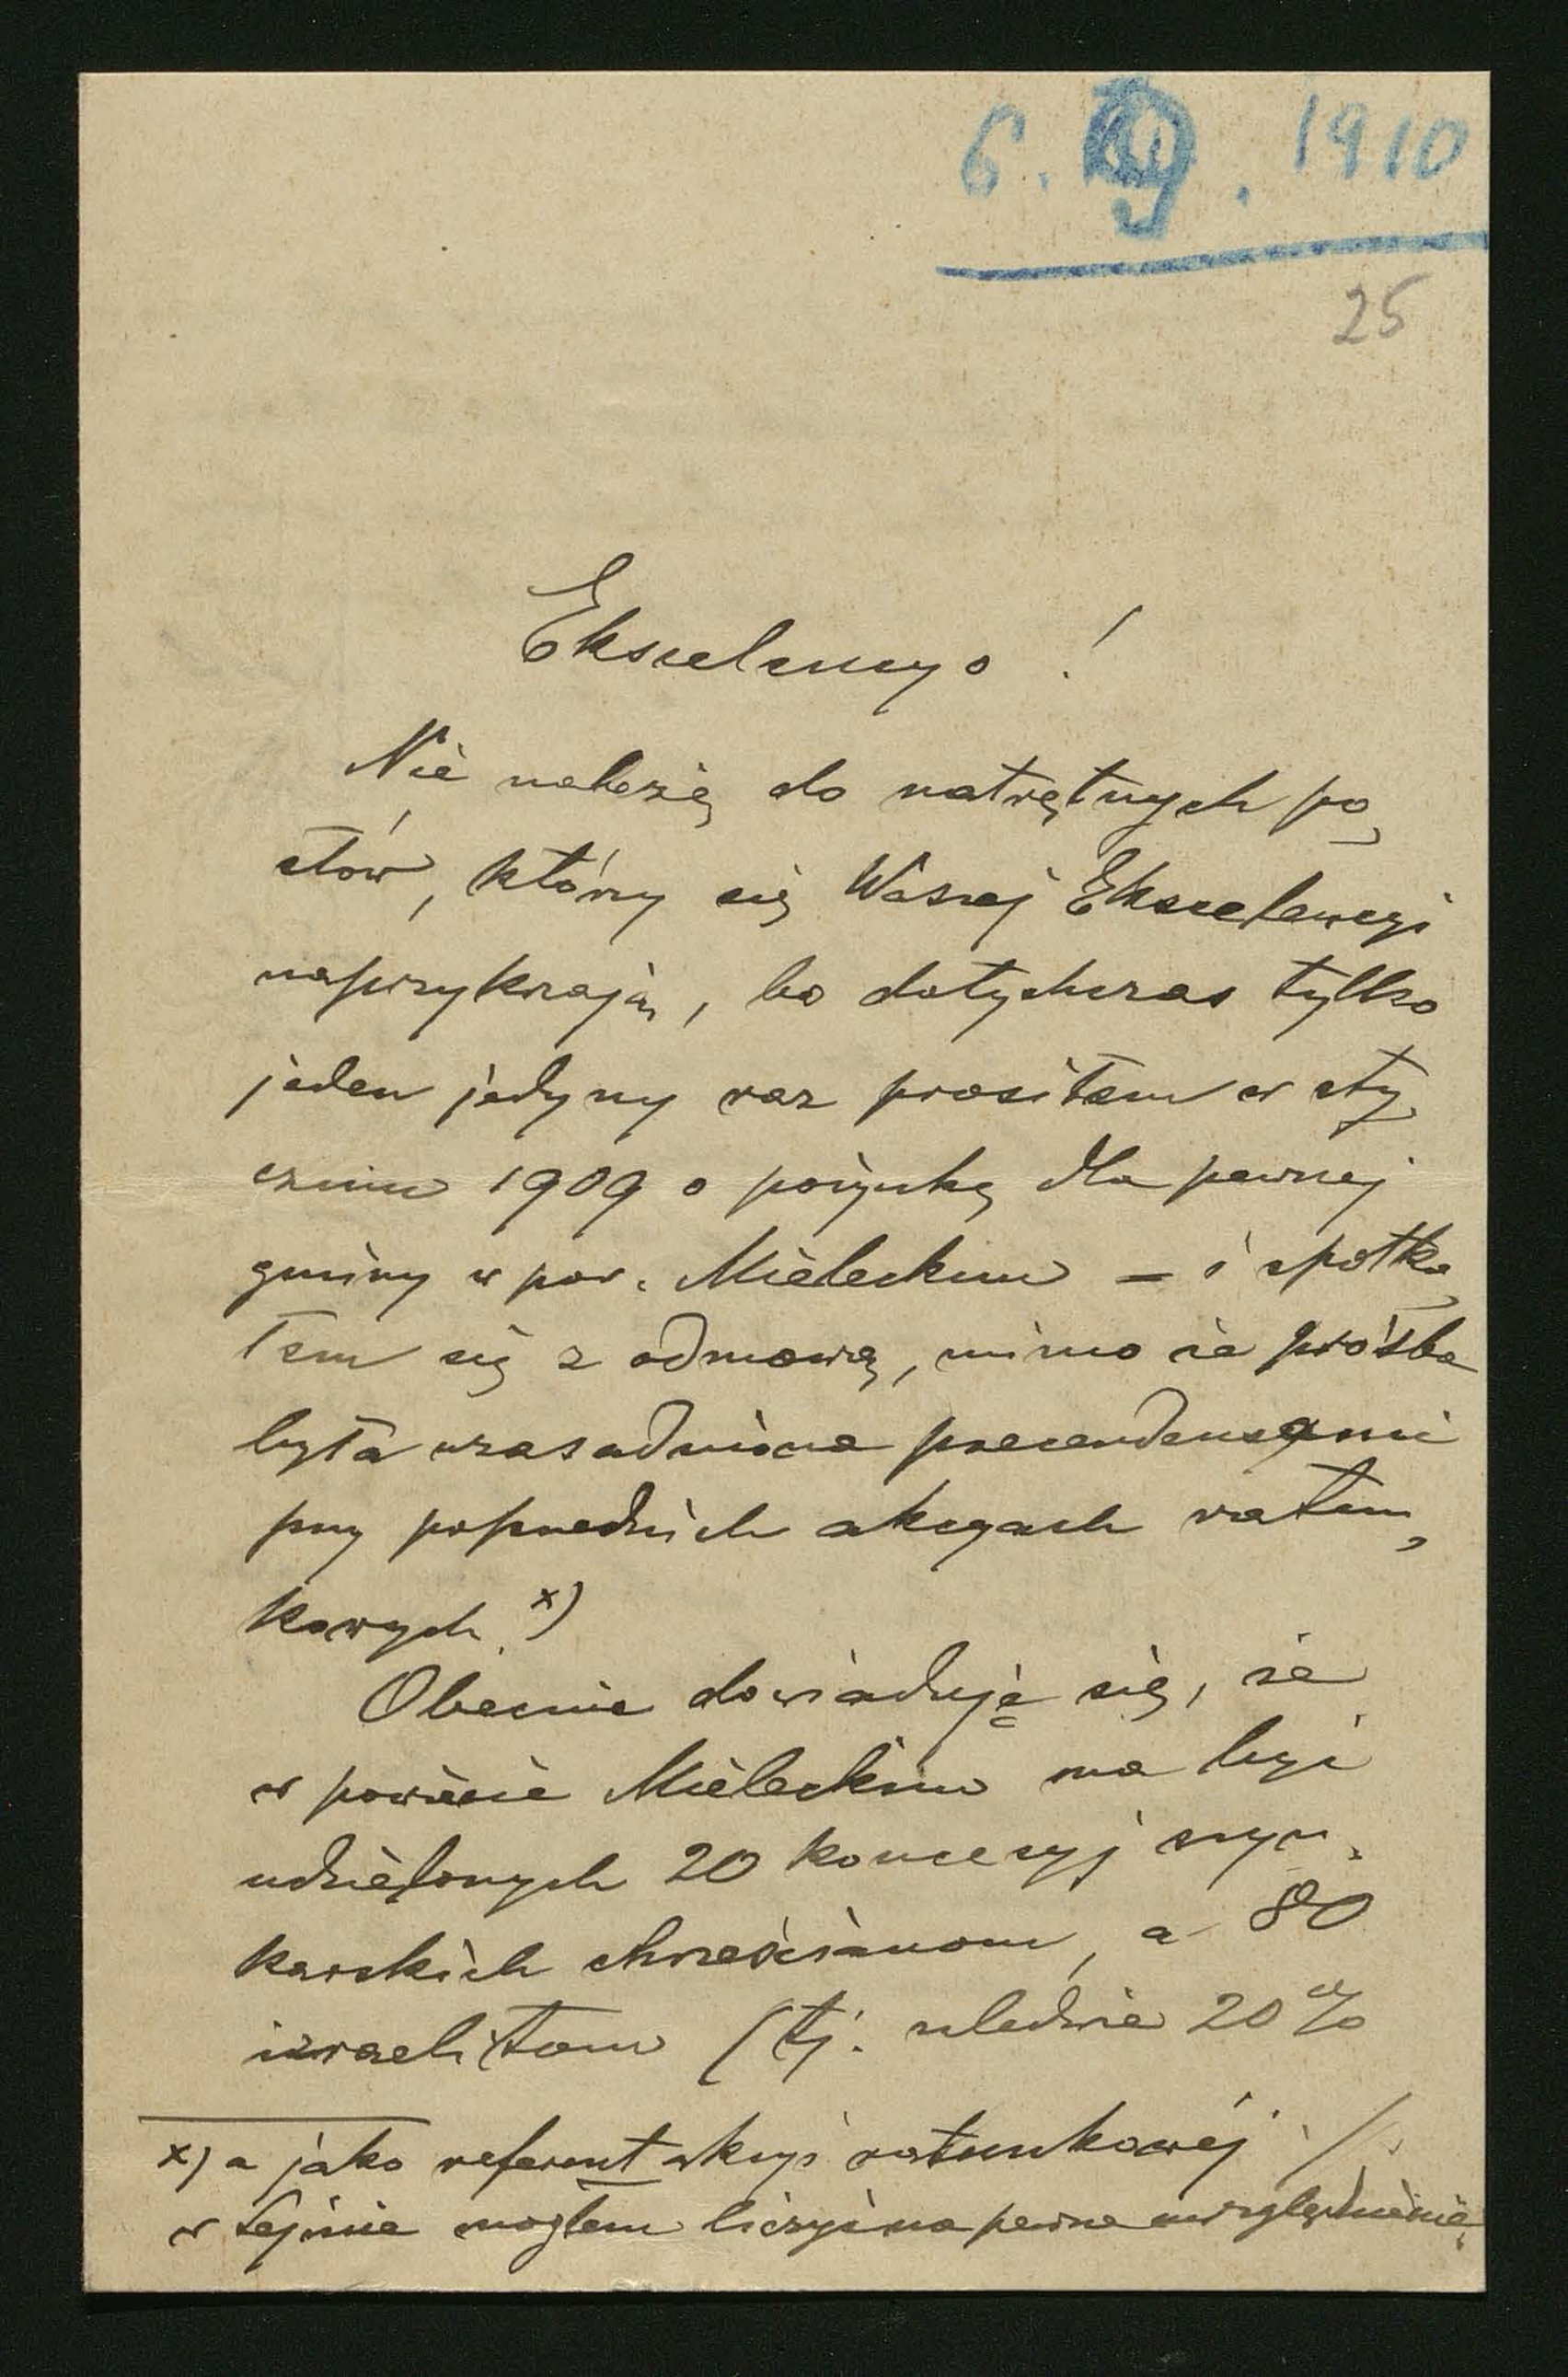 6. 9. 1910
25
Ekscelencyo!
Nie należę do natrętnych po-
słów, którzy się Waszej Ekscelencyi
naprzykrzają, bo dotychczas tylko
jeden jedyny raz prosiłem w sty-
czniu 1909 o pożyczkę dla pewnej
gminy w pow. Mieleckim – i spotka-
łem się z odmową, mimo że prośba
była uzasadniona precendensami
przy poprzednich akcyach ratun-
kowych. x)
Obecnie dowiaduję się, że
w powiecie Mieleckim ma być
udzielonych 20 koncesyj szyn-
karskich chrześcianom, a 80
izraelitom (tj. zaledwie 20%
x) a jako referent akcyi ratunkowej
w Sejmie mogłem liczyć na pewne uwzględnienie.